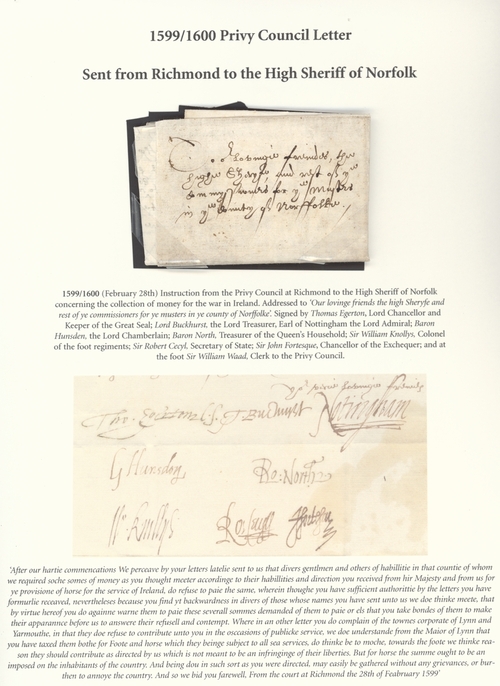 1599/1600 Privy Council Letter
Sent from Richmond to the High Sheriff of Norfolk
To or Lovinge frendes, the
highe Sheryfe and rest of ye
Commyssioners for ye Musters
in ye County of Norffolke.
1599/1600 (February 28th) Instruction from the Privy Council at Richmond to the High Sheriff of Norfolk
concerning the collection of money for the war in Ireland. Addressed to 'Our lovinge friends the high Sheryfe and
rest of ye commissioners for ye musters in ye county of Norffolke'. Signed by Thomas Egerton, Lord Chancellor and
Keeper of the Great Seal; Lord Buckhurst, the Lord Treasurer, Earl of Nottingham the Lord Admiral; Baron
Hunsden, the Lord Chamberlain; Baron North, Treasurer of the Queen's Household; Sir William Knollys, Colonel
of the foot regiments; Sir Robert Cecyl, Secretary of State; Sir John Fortesque, Chancellor of the Exchequer; and at
the foot Sir William Waad, Clerk to the Privy Council.
yor verie lovinge friends
Tho: Egerton C.S. T. Buckhurst Notingham
G Hunsdon Ro: North
W Knollys Ro: Cecyll J Fortescue
'After our hartie commencations We perceive by your letters latelie sent to us that divers gentlmen and others of habillitie in that countie of whom
we required soche somes of money as you thought meeter accordinge to their habillities and direction you received from hir Majesty and from us for
ye provisions of horse for the service of Ireland, do refuse to paie the same, wherein thoughe you have sufficient authorittie by the letters you have
formurlie receaved, nevertheless because you find yt backwardness in divers of those whose names you have sent unto us we doe thinke meete, that
by virtue hereof you do againe warne them to paie these severall sommes demanded of them to paie or els that you take bondes of them to make
their apparannce before us to answere their refusell and contempt. Where in an other letter you do complain of the townes corporate of Lynn and
Yarmouthe, in that they doe refuse to contribute unto in the osccasions of publicke service, we doe understande from the Maior of Lynn that
you have taxed them bothe for Foote and horse which they beinge subject to all sea services, do thinke be to moche, towards the foote we thinke rea-
son they should contribute as directed by us which is not meant to be an infringinge of their liberties. But for horse the summe ought to be an
imposed on the inhabitants of the country. And being dou in such sort as you were directed, may easily be gathered without any grievances, or bur-
then to annoye the country. And so we bid you farewell, From the court at Richmond the 28th of Feabruary 1599'